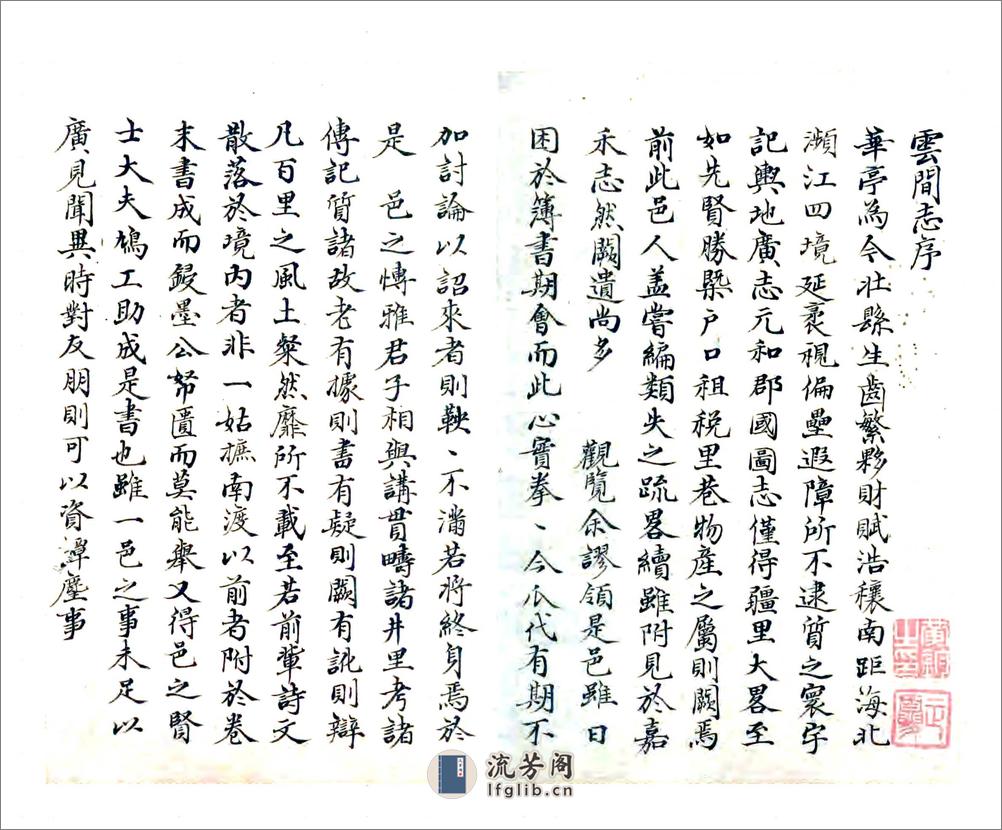 雲間志序
華亭為今壯縣生齒繁夥財賦浩穰南距海北
瀕江四境延袤視偏壘遐障所不逮質之寰宇
記輿地廣志元和郡國圖志僅得疆里大畧至
如先賢勝槩户口租税里巷物產之屬則闕焉
前此邑人盖嘗編類失之疏畧續雖附見於嘉
禾志然闕遺尚多 觀覽余謬領是邑雖日
困於簿書期會而此心實拳〻今瓜代有期不
加討論以詔來者則鞅〻不滿若將終身焉於
是 邑之慱雅君子相與講貫疇諸井里考諸
傳記質諸故老有據則書有疑則闕有訛則辯
凡百里之風土粲然靡所不載至若前輩詩文
散落於境內者非一姑摭南渡以前者附於卷
末書成而鋟墨公帑匱而莫能舉又得邑之賢
士大夫鳩工助成是書也雖一邑之事未足以
廣見聞異時對友朋則可以資譚麈事
流芳阁
lfglib.cn